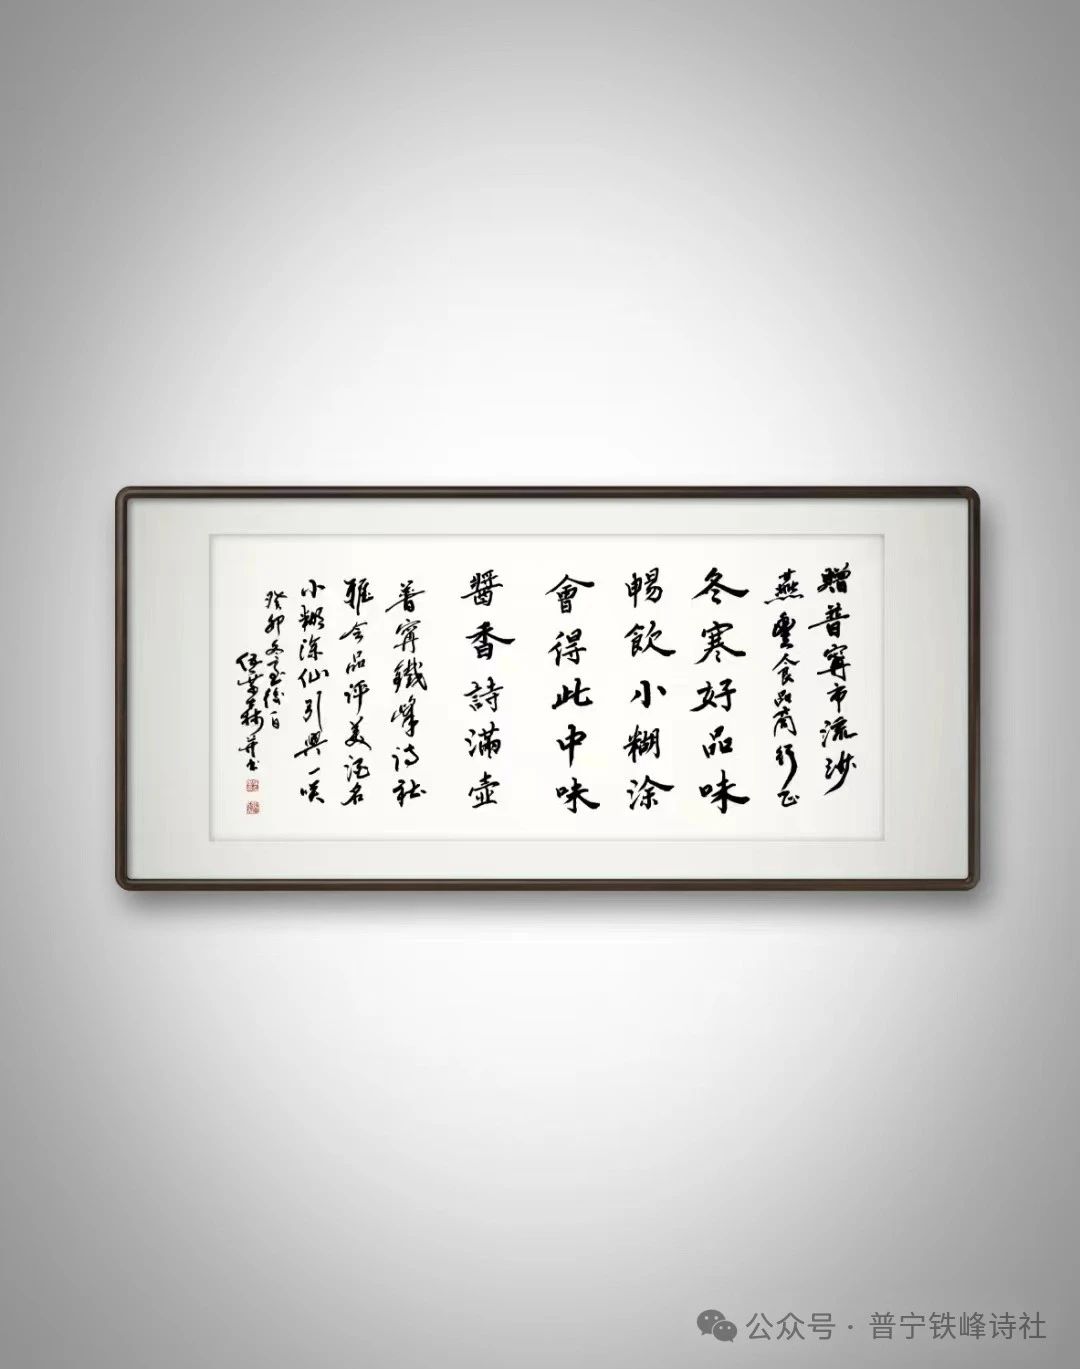 贈普寧市流沙
燕豐食品商行正
冬寒好品味
暢飲小糊涂
會得此中味
醬香詩滿壺
普寧鐵峰诗社
雅会品评美酒名
小糊涂仙引興一咲
癸卯冬至後一日
伍 并书
公众号 · 普宁铁峰诗社